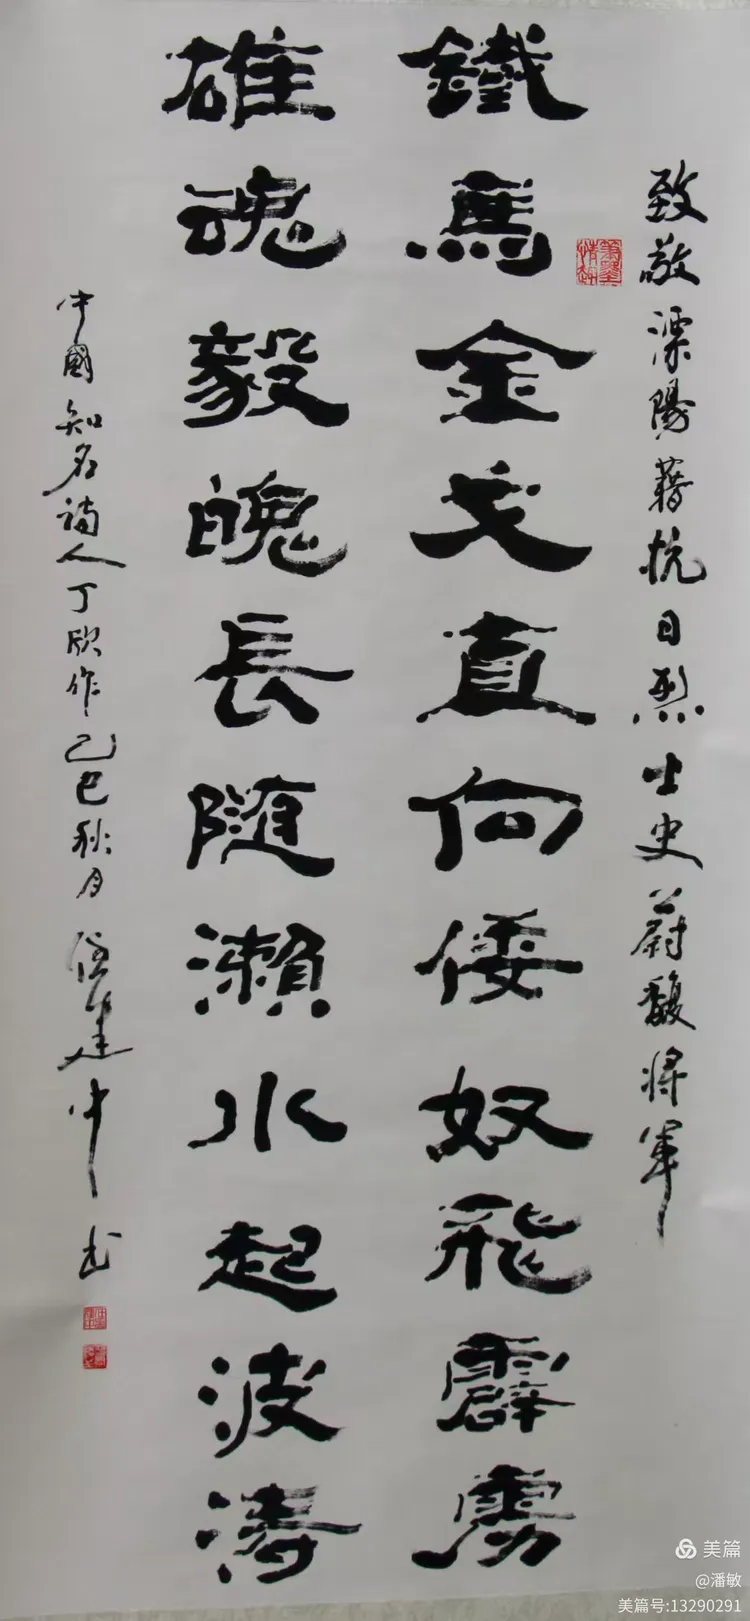 致敬溧陽藉抗日烈士史蔚馥将軍
鐵馬金戈直向倭奴飛霹雳
雄魂毅魄長随瀨水起波濤
中國知名詩人丁欣作乙巳秋月 建中书
美篇
@潘敏
美篇号:13290291